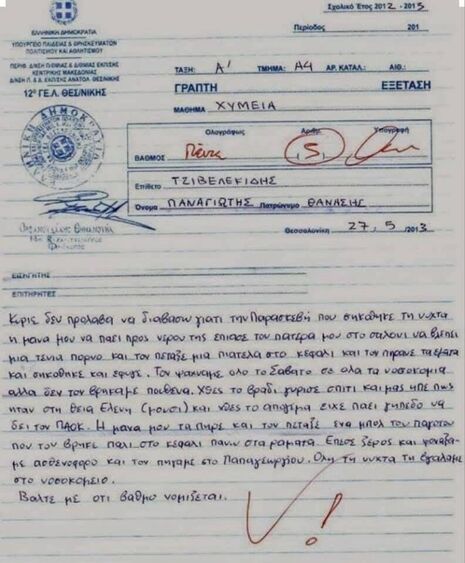 Σχολικό Έτος 2012 - 2013
ΕΛΛΗΝΙΚΗ ΔΗΜΟΚΡΑΤΙΑ
ΥΠΟΥΡΓΕΙΟ ΠΑΙΔΕΙΑΣ & ΘΡΗΣΚΕΥΜΑΤΩΝ
ΠΟΛΙΤΙΣΜΟΥ ΚΑΙ ΑΘΛΗΤΙΣΜΟΥ
Περίοδος 201
ΠΕΡΙΦ. ΔΙΕΥΘ. Π/ΘΜΙΑΣ & Δ/ΘΜΙΑΣ ΕΚΠ/ΣΗΣ
ΚΕΝΤΡΙΚΗΣ ΜΑΚΕΔΟΝΙΑΣ
ΔΙΕΥΘ. & Δ/ΘΜΙΑΣ ΕΚΠ/ΣΗΣ ΑΝΑΤΟΛ. ΘΕΣ/ΝΙΚΗΣ
12º ΓΕΛ. ΘΕΣ/ΝΙΚΗΣ
ΤΑΞΗ: Α' ΤΜΗΜΑ: Α4 ΑΡ. ΚΑΤΑΛ.: ΑΙΘ.:
ΓΡΑΠΤΗ ΕΞΕΤΑΣΗ
ΜΑΘΗΜΑ ΧΥΜΕΙΑ
Ολογράφως Αριθμ. Υπογραφή
ΒΑΘΜΟΣ Πέντε 5
Επίθετο ΤΖΙΒΕΛΕΚΙΔΗΣ
Όνομα ΠΑΝΑΓΙΩΤΗΣ Πατρώνυμο ΘΑΝΑΣΗΣ
Θεσσαλονίκη 27, 5 /2013
ΕΙΣΗΓΗΤΗΣ
ΕΠΙΤΗΡΗΤΕΣ
Κυριε δεν προλαβα να διαβασω γιατι την Παρασκεβη που σηκοθηκε τη νυχτα
η μανα μου να παει προς νερου της επιασε τον πατερα μου στο σαλονι να βλεπει
μια τενια πορνο και τον πεταξε μια πιατελα στο κεφαλι και τον πηρανε τα εματα
και σηκοθηκε και εφυγε. Τον ψαχναμε ολο το Σαβατο σε ολα τα νοσοκομια
αλλα δεν τον βρηκαμε πουθενα. Χθες το βραδι γυρισε σπιτι και μας ηπε πως
ηταν στη θεια Ελενη (μουσι) και χθες το απογιμα ειχε παει γηπεδο να
δει τον ΠΑΟΚ. Η μανα μου τα πηρε και τον πεταξε ενα μπολ του παγοτου
που τον βρηκε παλι στο κεφαλι πανω στα ραματα. Επεσε ξερος και φοναξα-
με ασθενοφορο και τον πηγαμε στο Παπαγεωργιου. Ολη τη νυχτα τη βγαλαμε
στο νοσοκομειο.
Βαλτε με οτι βαθμο νομιζεται.